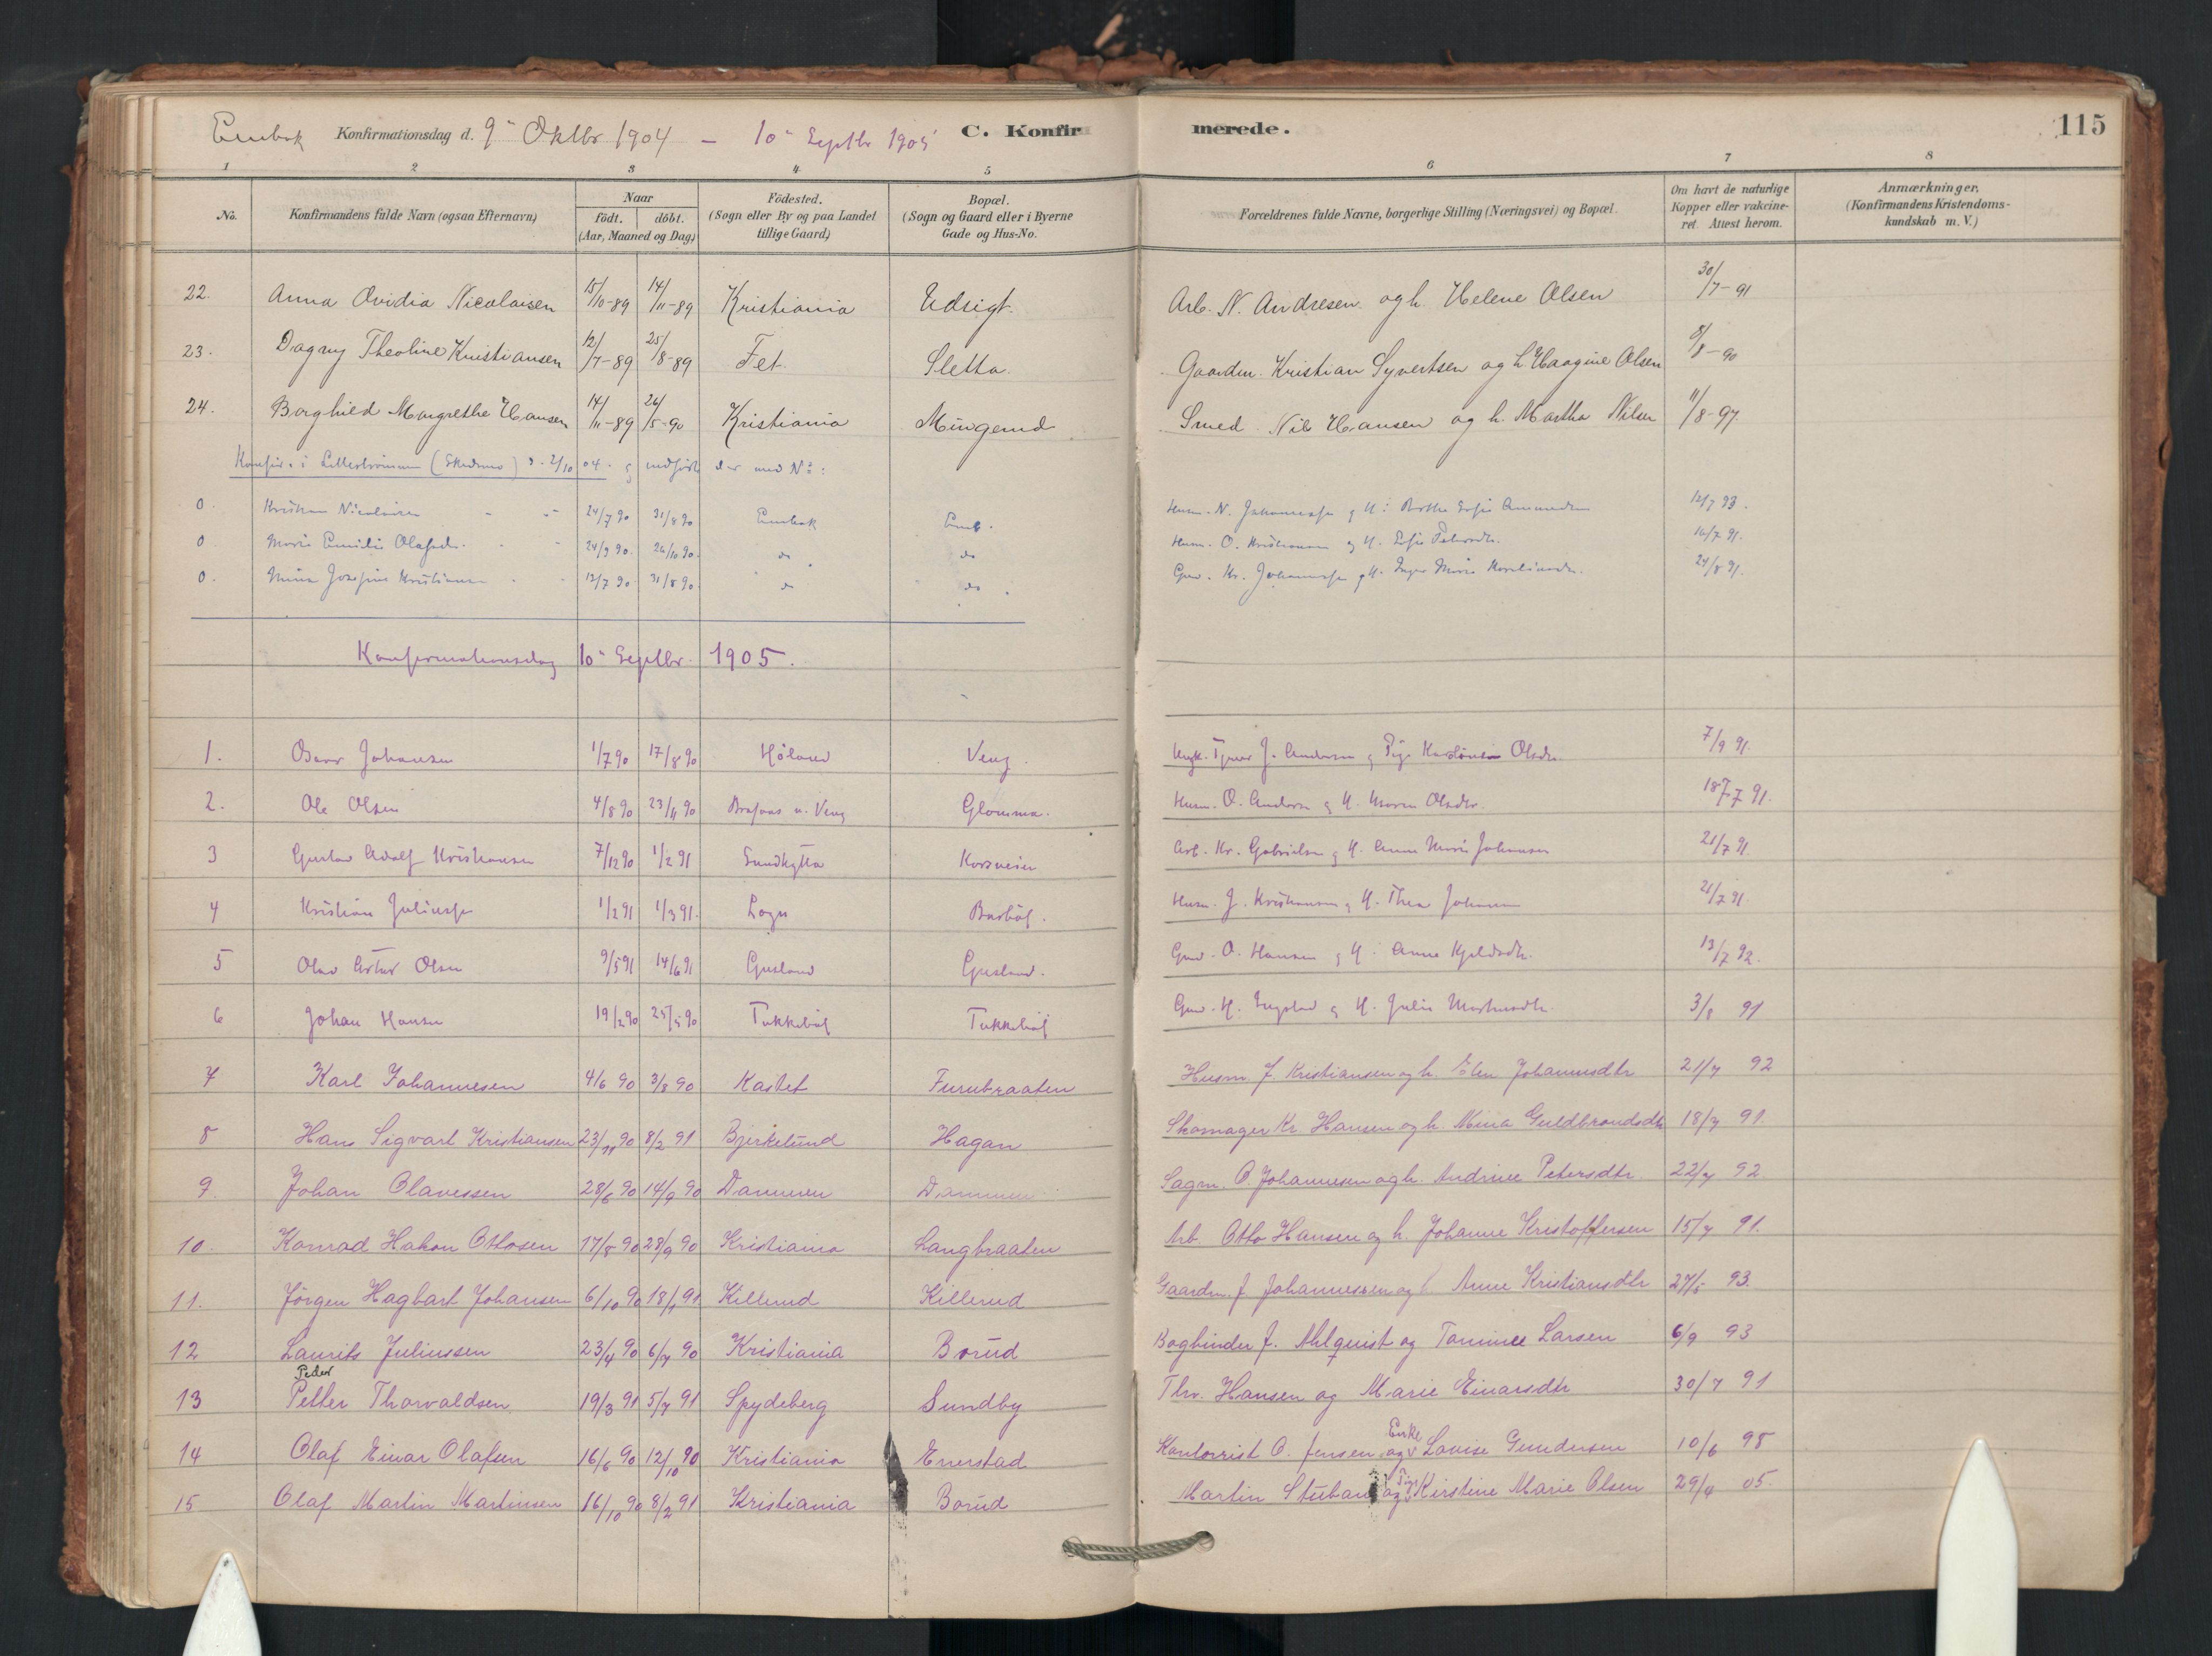 Konfirmationsdag d. 9 Oktbr 1904 – 10 Septbr 1905 C. Konfirmerede. 115
1 2 3 4 5 6 7 8
No. Konfirmandens fulde Navn (ogsaa Efternavn) Naar födt. döbt. (Aar, Maaned og Dag) Födested. (Sogn eller By og paa Landet tillige Gaard) Bopæl. (Sogn og Gaard eller i Byerne Gade og Hus-No. Forældrenes fulde Navne, borgerlige Stilling (Næringsvei) og Bopæl. Om havt de naturlige Kopper eller vakcineret. Attest herom. Anmærkninger, (Konfirmandens Kristendomskundskab m. V.)
22. Anna Ovidia Nicolaisen 15/10-89 14/11-89 Kristiania Udsigt. Arb. N. Andresen og h. Helene Olsen 30/7-91
23. Dagny Theoline Kristiansen 12/7-89 25/8-89 Fet. Sletta. Gaardm. Kristian Syvertsen og h. Haagine Olsen 8/8-90
24. Borghild Margrethe Hansen 14/11-89 26/5-90 Kristiania Mingerud Smed Nils Hansen og h. Martha Nilsen 11/8-97
Konfir. i Lillestrømmen (Skedsmo) d. 2/10 04. og indført der med No:
0. Kristian Nicolaisen 24/7 90 31/8 90 Enebak Eneb. Husm. N. Johannessen og H. 12/7 93.
0. Marie Emilie Olafsdr. 24/9 90. 26/10 90. do do Husm. O. Kristiansen og H. Sofie Petersdtr. 16/7 91.
0. Mina Josefine Kristiansen 13/7 90 31/8 90 do do Gmd. Kr. Johannessen og H. Inger Marie 24/8 91.
Konfirmationsdag 10 Septbr. 1905.
1. Johansen 1/7 90 17/8 90 Høland Veng. Ungk. J. Andersen og Pige Olsdr. 7/9 91.
2. Ole Olsen 4/8 90 23/11 90 u. Veng Glomma. Husm. O. Andersen og H. Maren Olsdtr. 18/7 91.
3 Gustav Adolf Kristiansen 7/12 90 1/2 91 Sundhytta Korsveien Arb. Kr. Gabrielsen og H. Anne Marie Johansen 21/7 91
4 Kristian Juliussen 1/2 91 1/3 91. Børbøl. Husm. J. Kristiansen og H. Thea Johansen 21/7 91.
5 Olav Artur Olsen 9/5 91 14/6 91 Gjesland Gjesland. Gmd. O. Hansen og H. Anne 13/7 92.
6 Johan Hansen 19/2 90 25/5 90 Tukkebøl Tukkebøl Gmd. H. Ingstad og H. Julie 3/8 91
7 Karl Johannesen 4/6 90 3/8 90 Kastet Furubraaten Husm. J. Kristiansen og h. Elen Johannesdtr 21/7 92
8 Hans Sigvart Kristiansen 23/11 90 8/2 91 Bjerkelund Hagan Skomager Kr. Hansen og h. Mina Guldbrandsdtr 18/7 91.
9. Johan Olavessen 28/6 90 14/9 90 Dammen Dammen Sagm. O. Johannesen og h. Andrine Petersdtr. 22/7 92
10. Konrad Hakon Ottosen 17/8 90 28/9 90 Kristiania Langbraaten Arb. Otto Hansen og h. Johanne Kristoffersen 15/7 91.
11. Jörgen Hagbart Johansen 6/10 90 18/1 91 Killerud Killerud Gaardm. J. Johannessen og h. Anne Kristiansdtr 27/5 93.
12 Laurits Juliussen 23/4 90 6/7 90 Kristiania Borud Bogbinder J. Ahlquist og Tomine Larsen 6/9 93
Peder
13 Petter Thorvaldsen 19/3 91 5/7 91 Spydeberg Sundby Thv. Hansen og Marie Einarsdtr 30/7 91
14 Olaf Einar Olafsen 16/6 90 12/10 90 Kristiania Enerstad Kontorrist O. Jensen og Enke Lovise Gundersen 10/6 98
15 Olaf Martin Martinsen 16/10 90 8/2 91 Kristiania Borud Martin Stuban og Pige Kirstine Marie Olsen 29/4 05